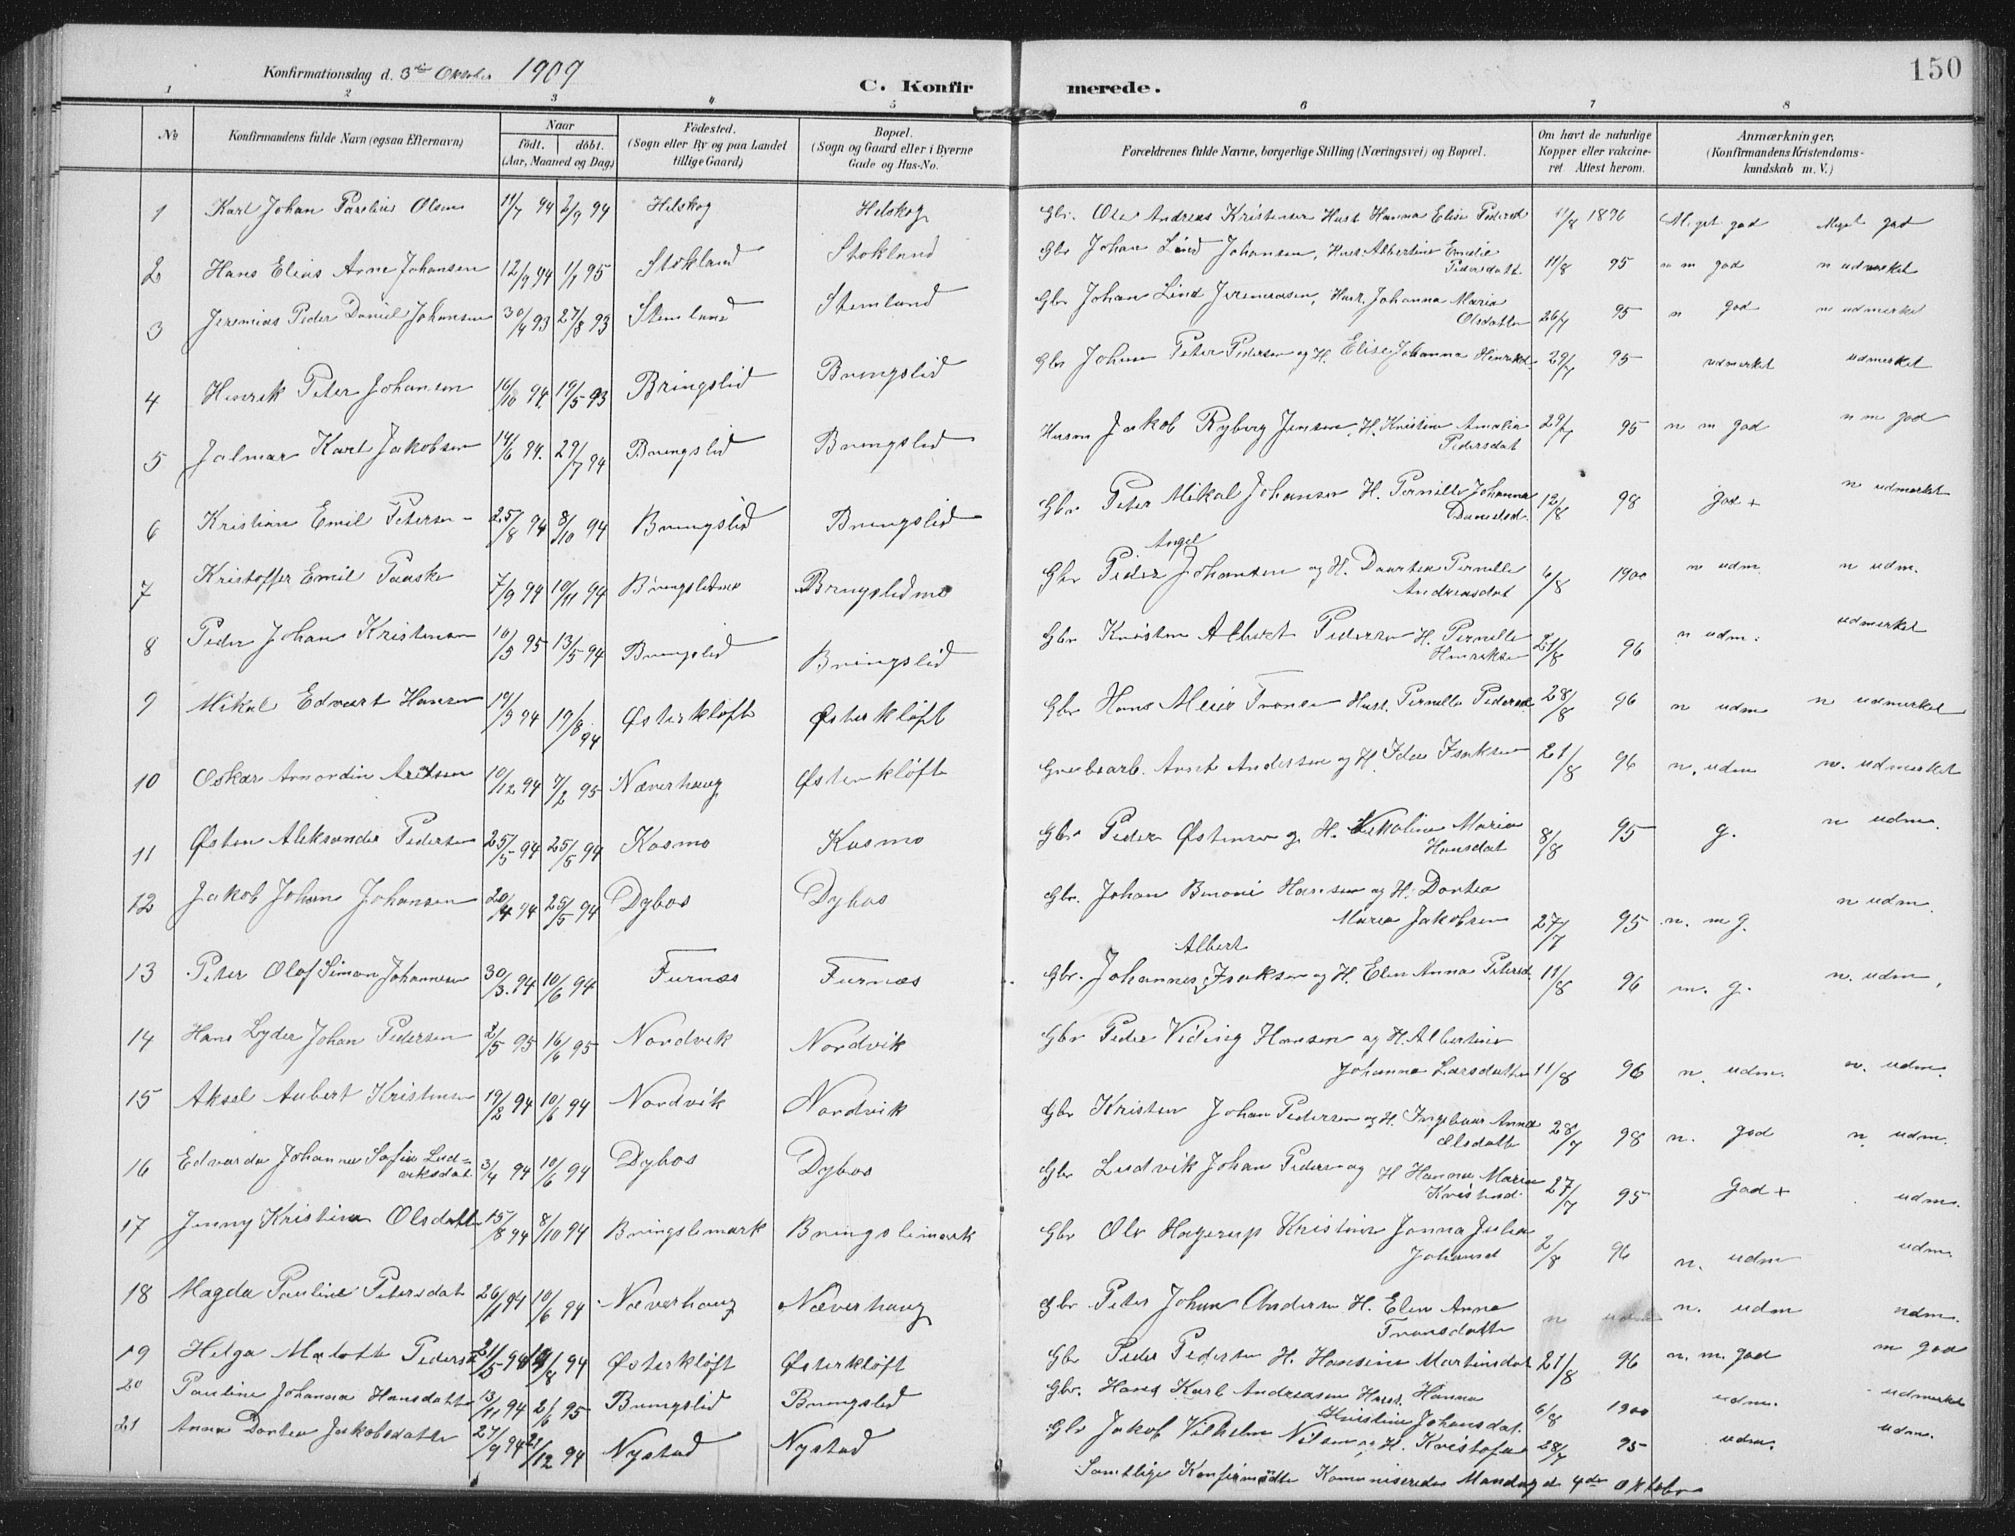 150
Konfirmationsdag d. 3die Oktober 1909
C. Konfirmerede.
1 2 3 4 5 6 7 8
No Konfirmandens fulde Navn (ogsaa Efternavn) Naar födt. döbt. (Aar, Maaned og Dag) Födested. (Sogn eller By og paa Landet tillige Gaard) Bopæl. (Sogn og Gaard eller i Byerne Gade og Hus-No. Forældrenes fulde Navne, borgerlige Stilling (Næringsvei) og Bopæl. Om havt de naturlige Kopper eller vakcineret Attest herom. Anmærkninger, (Konfirmandens Kristendomskundskab m. V.)
1 Karl Johan Parelius Olsen 11/7 94 2/9 94 Helskog Helskog Gbr. Ole Andreas Kristensen Hust Hanna Elise Pedersd 11/8 1896 Meget god Meget god
2 Hans Elias Arne Johansen 12/9 94 1/1 95 Stokland Stokland Gbr Johan Lind Johansen, Hust Albertine Emelie Pedersdatt 11/8 95 n m god n udmerket
3 Jeremias Peder Daniel Johansen 30/4 93 27/8 93 Stemland Stemland Gbr Johan Lind Jeremiasen, Hust. Johanna Maria Olsdatter 26/7 95 n god n udmerket
4 Henrik Peter Johansen 16/10 94 19/5 93 Bringslid Bringslid Gbr Johan Peter Pedersen og H. Elise Johanna Henriksd. 29/7 95 udmerket udmerket
5 Jalmar Karl Jakobsen 14/6 94. 29/7 94 Bringslid Bringslid Husm Jakob Ryberg Jensen, H. Kristine Amalia Pedersdat 29/7 95 n m god n m god
6 Kristian Emil Petersen 25/8 94 8/10 94 Bringslid Bringslid Gbr Peter Mikal Johansen H. Pernille Johanna Danielsd. 12/8 98 god + n udmerket
7 Kristoffer Emil Paaske 7/9 94 19/11 94 Bringslidmo Bringslidmo Gbr Peder Angel Johansen og H. Daartea Pernille Andreasdat 6/8 1900 n udm. n udm.
8 Peder Johan Kristensen 10/3 95 13/5 94 Bringslid Bringslid Gbr Kristen Albert Pedersen H. Pernille Henriksen 21/8 96 n udm. udmerket
9 Mikal Edvart Hansen 19/3 94 19/8 94 Østerkløft Østerkløft Gbr Hans Meier Fransen Hust. Pernille Pedersd 28/8 96 n udm n udmerket
10 Oskar Arnordin Arntsen 10/12 94 7/2 95 Næverhaug Østerkløft Grubearb. Arnt Andersen og H. Ida Isaksen 21/8 96 n. udm n. udmerket
11 Østen Aleksander Pedersen 25/5 94 25/5 94 Kosmo Kosmo Gbr Peder Østensen og H. Nikoline Maria Hansdat 8/8 95 g. n udm.
12 Jakob Johan Johansen 20/4 94 25/5 94 Dybos Dybos Gbr. Johan Benoni Hansen og H. Dortea Maria Jakobsen 27/7 95 n. m g. n udm.
13 Peter Olof Simon Johannesen 30/3. 94 10/6 94 Furnæs Furnæs Gbr. Johannes Albert Isaksen og H. Elen Anna Petersd. 11/8 96 m. g. n. udm.
14 Hans Lyder Johan Pedersen 2/5 95 16/6 95 Nordvik Nordvik Gbr Peder Viding Hansen og H. Albertine Johanna Larsdatter 11/8 96 n. udm. n. udm.
15 Aksel Aubert Kristensen 19/2 94 10/6 94 Nordvik Nordvik Gbr Kristen Johan Pedersen og H. Ingebaar Anna Olsdatt 28/7 98 n. god n. udm.
16 Edvarda Johanna Sofie Ludviksdat 3/4 94 10/6 94 Dybos Dybos Gbr Ludvik Johan Pedersen og H Hanna Maria Kristensd. 27/7 95 God + udm.
17 Jenny Kristine Olsdatt 15/8 94 8/10 94 Bringslimark Bringslimark Gbr Ole Hagerup Kristine Janna Julia Johansd 2/8 96 n. udm udm.
18 Magda Pauline Petersdat 26/1 94 10/6 94 Næverhaug Næverhaug Gbr Peter Johan Andersen H. Elen Anna Fransdatte n. udm udm.
19 Helga Malotte Pedersd 21/5 94 19/8 94 Østerkløft Østerkløft Gbr Peder Pedersen H. Hansine Martinsdat 21/8 96 n. m. god m god
20 Pauline Johanna Hansdatt 13/11 94 2/6 95 Bringslid Bringslid Gbr. Hans Karl Andreasen Hust. Hanna Kristine Johansdat. 6/8 1900 udm. udmerket
21 Anna Dortea Jakobsdatte 27/9 94 21/12 94 Nystad Nystad Gbr Jakob Vilhelm Nilsen og H. Kristofa 28/7 95 udm. udm.
Samtlige Konfirmandte Kommuniserede Mandag d 4de Oktober